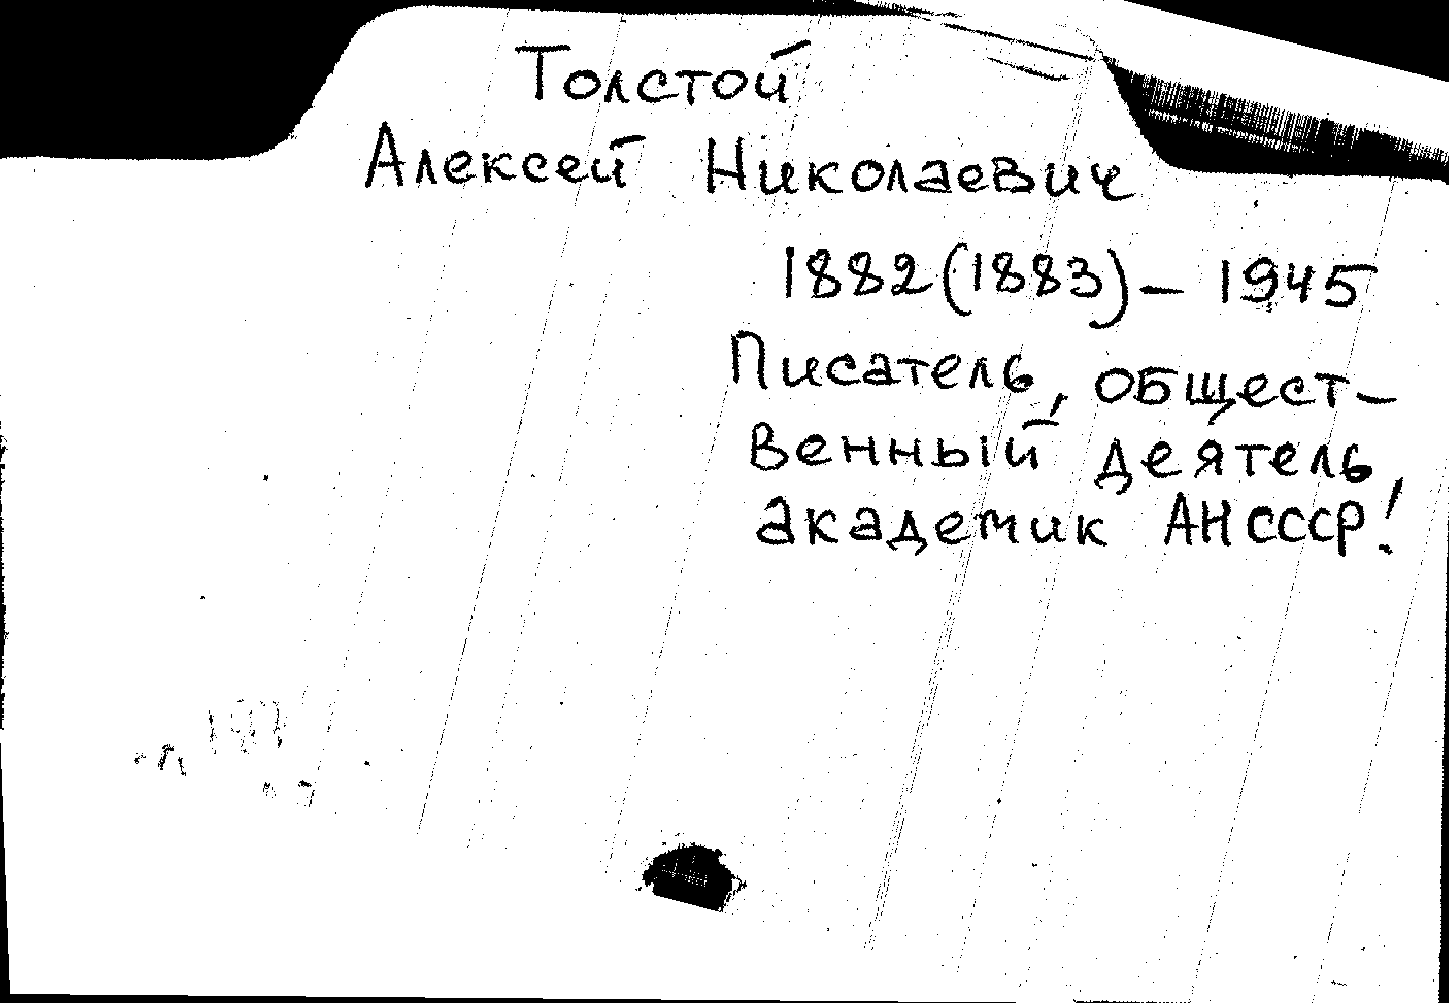 Толстой
Алексей Николаевич
1882(1883) – 1945
Писатель, общест-
венный деятель,
академик АН СССР!